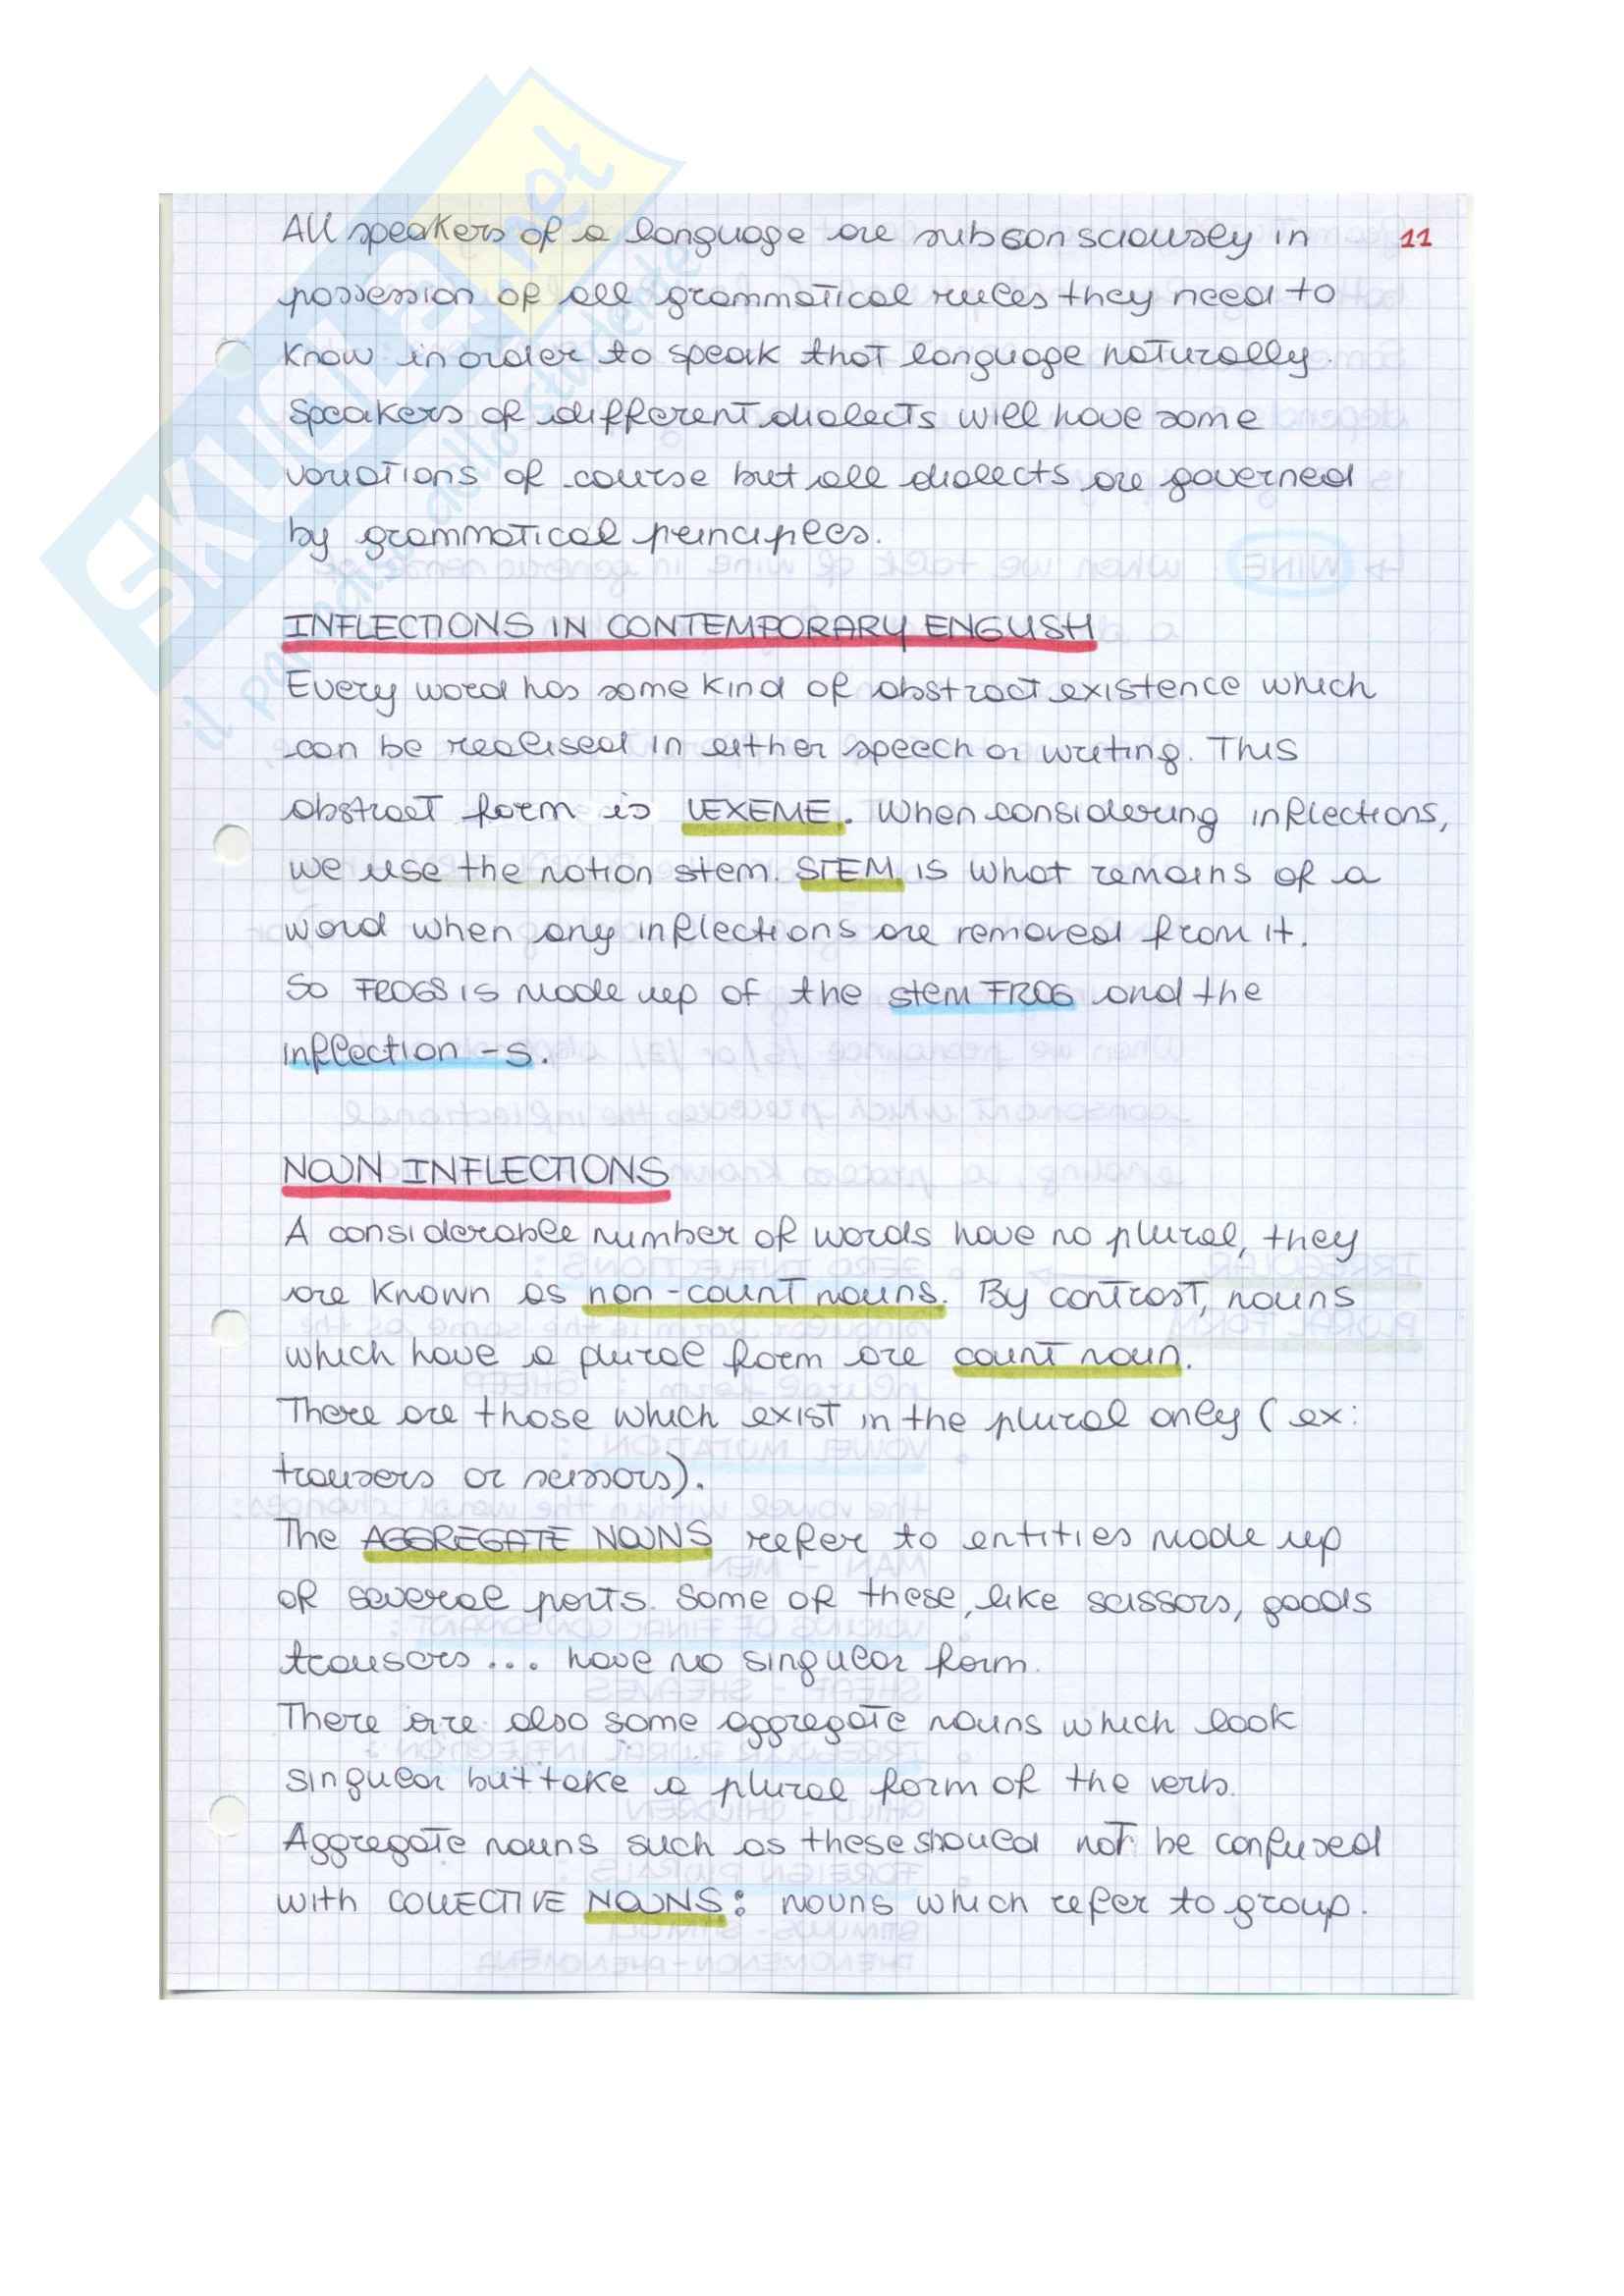 All speakers of a language are subconsciously in
11
possession of all grammatical rules they need to
know in order to speak that language naturally.
Speakers of different dialects will have some
variations of course but all dialects are governed
by grammatical principles.
INFLECTIONS IN CONTEMPORARY ENGLISH
Every word has some kind of abstract existence which
can be realised in either speech or writing. This
abstract form is LEXEME. When considering inflections,
we use the notion stem. STEM is what remains of a
word when any inflections are removed from it.
So FROGS is made up of the stem FROG and the
inflection -s.
NOUN INFLECTIONS
A considerable number of words have no plural, they
are known as non-count nouns. By contrast, nouns
which have a plural form are count noun.
There are those which exist in the plural only (ex:
trousers or scissors).
The AGGREGATE NOUNS refer to entities made up
of several parts. Some of these, like scissors, goods
trousers... have no singular form.
There are also some aggregate nouns which look
singular but take a plural form of the verb.
Aggregate nouns such as these should not be confused
with COLLECTIVE NOUNS: nouns which refer to group.
SKUOLA.net